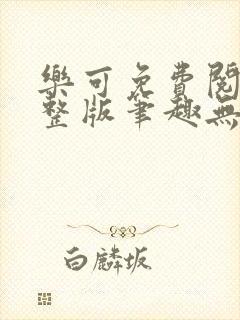 樂可免費閱
整版筆趣無
白麟坂